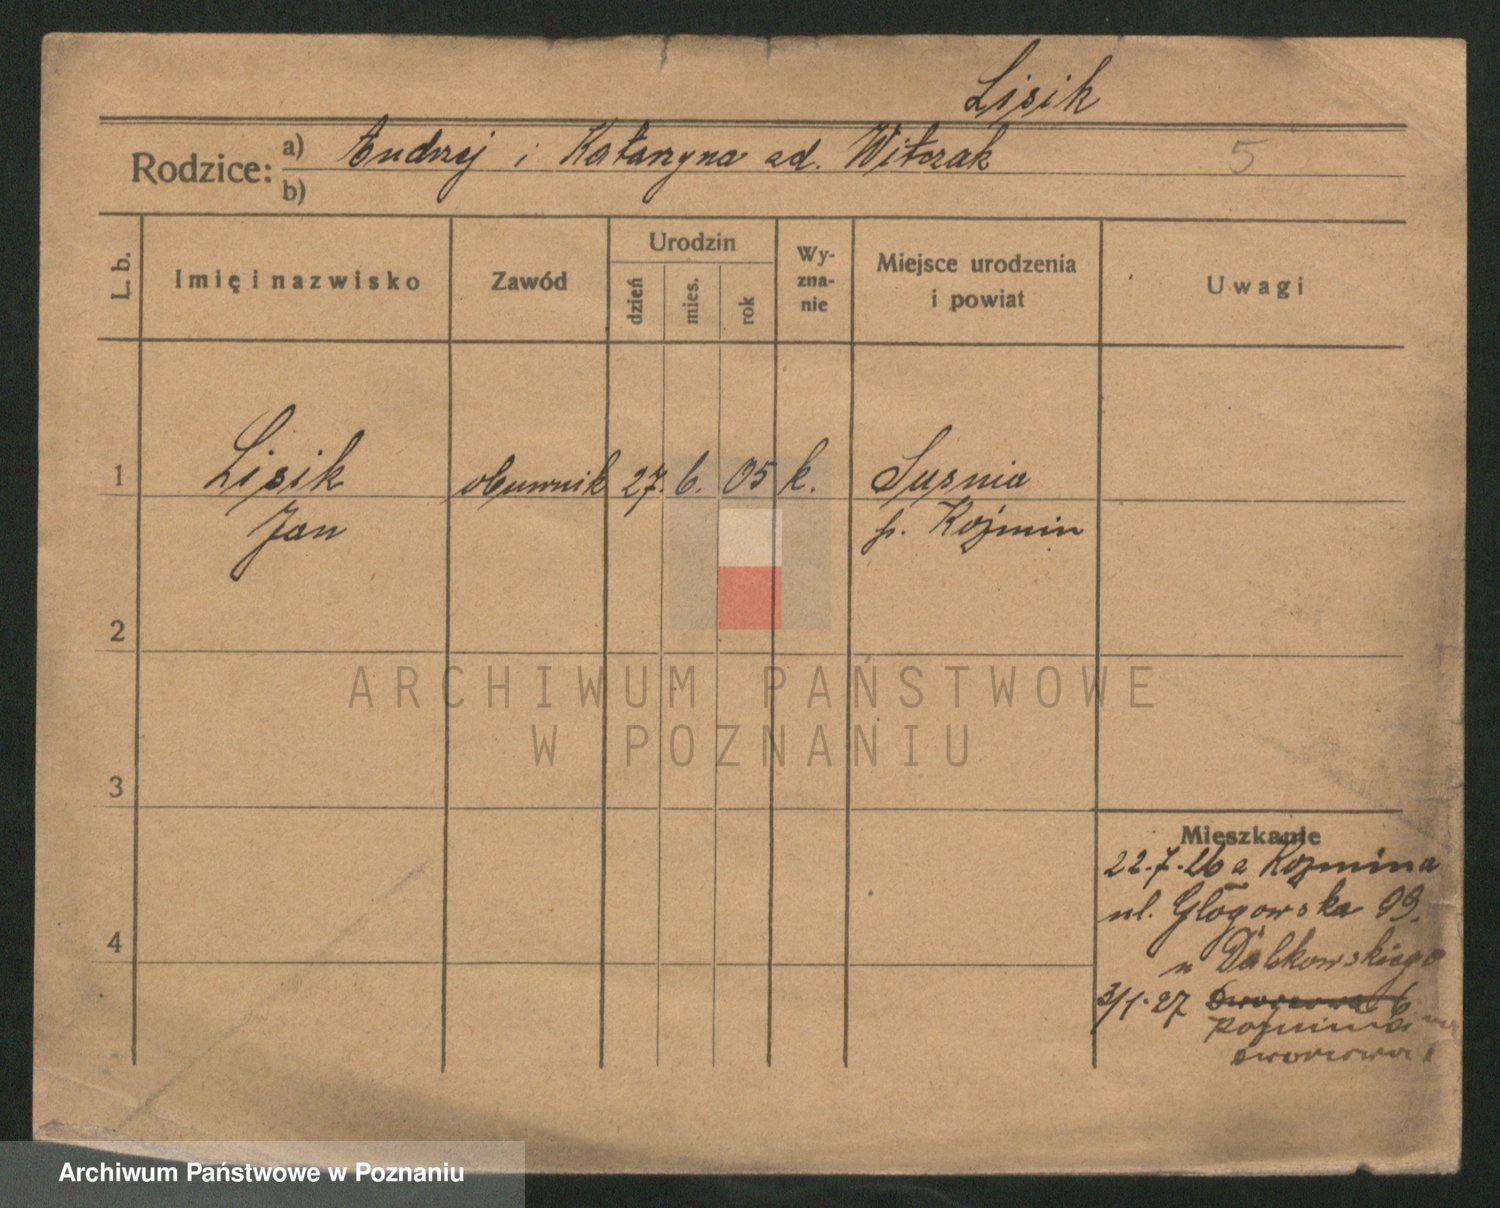 Lisik
Rodzice: a) Andrzej i Katarzyna zd. Witczak 5
b)
L. b. Imię i nazwisko Zawód Urodzin dzień mies. rok Wy-zna-nie Miejsce urodzenia i powiat Uwagi
1 Lisik obuwnik 27. 6. 05 k. Suśnia
Jan p. Koźmin
2
ARCHIWUM PAŃSTWOWE
W POZNANIU
3
Mieszkanie
22.7.26 z Koźmina
ul. Głogowska 99.
4
u Dabkowskiego
3/1.27 Dworcowa 6
Koźmina
Dworcowa
Archiwum Państwowe w Poznaniu